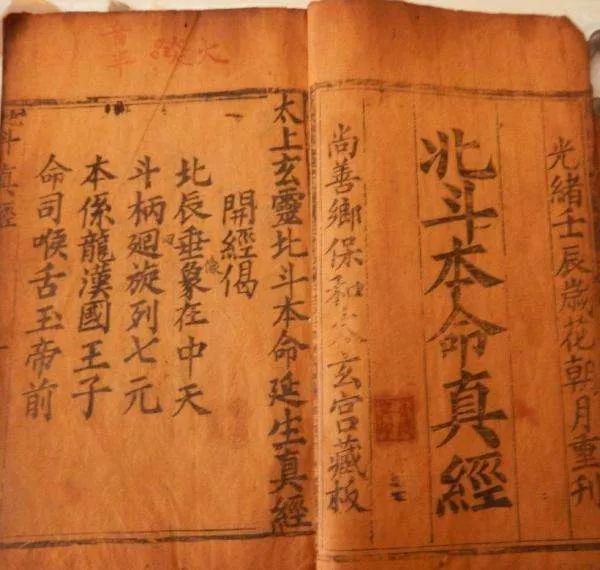 光緒壬辰歲花朝月重刊
北斗本命真經
尚善鄉保和 玄宮藏板
太上玄靈北斗本命延生真經
開經偈
北辰垂象在中天
斗柄迴旋列七元
本係龍漢國王子
命司喉舌玉帝前
北斗真經